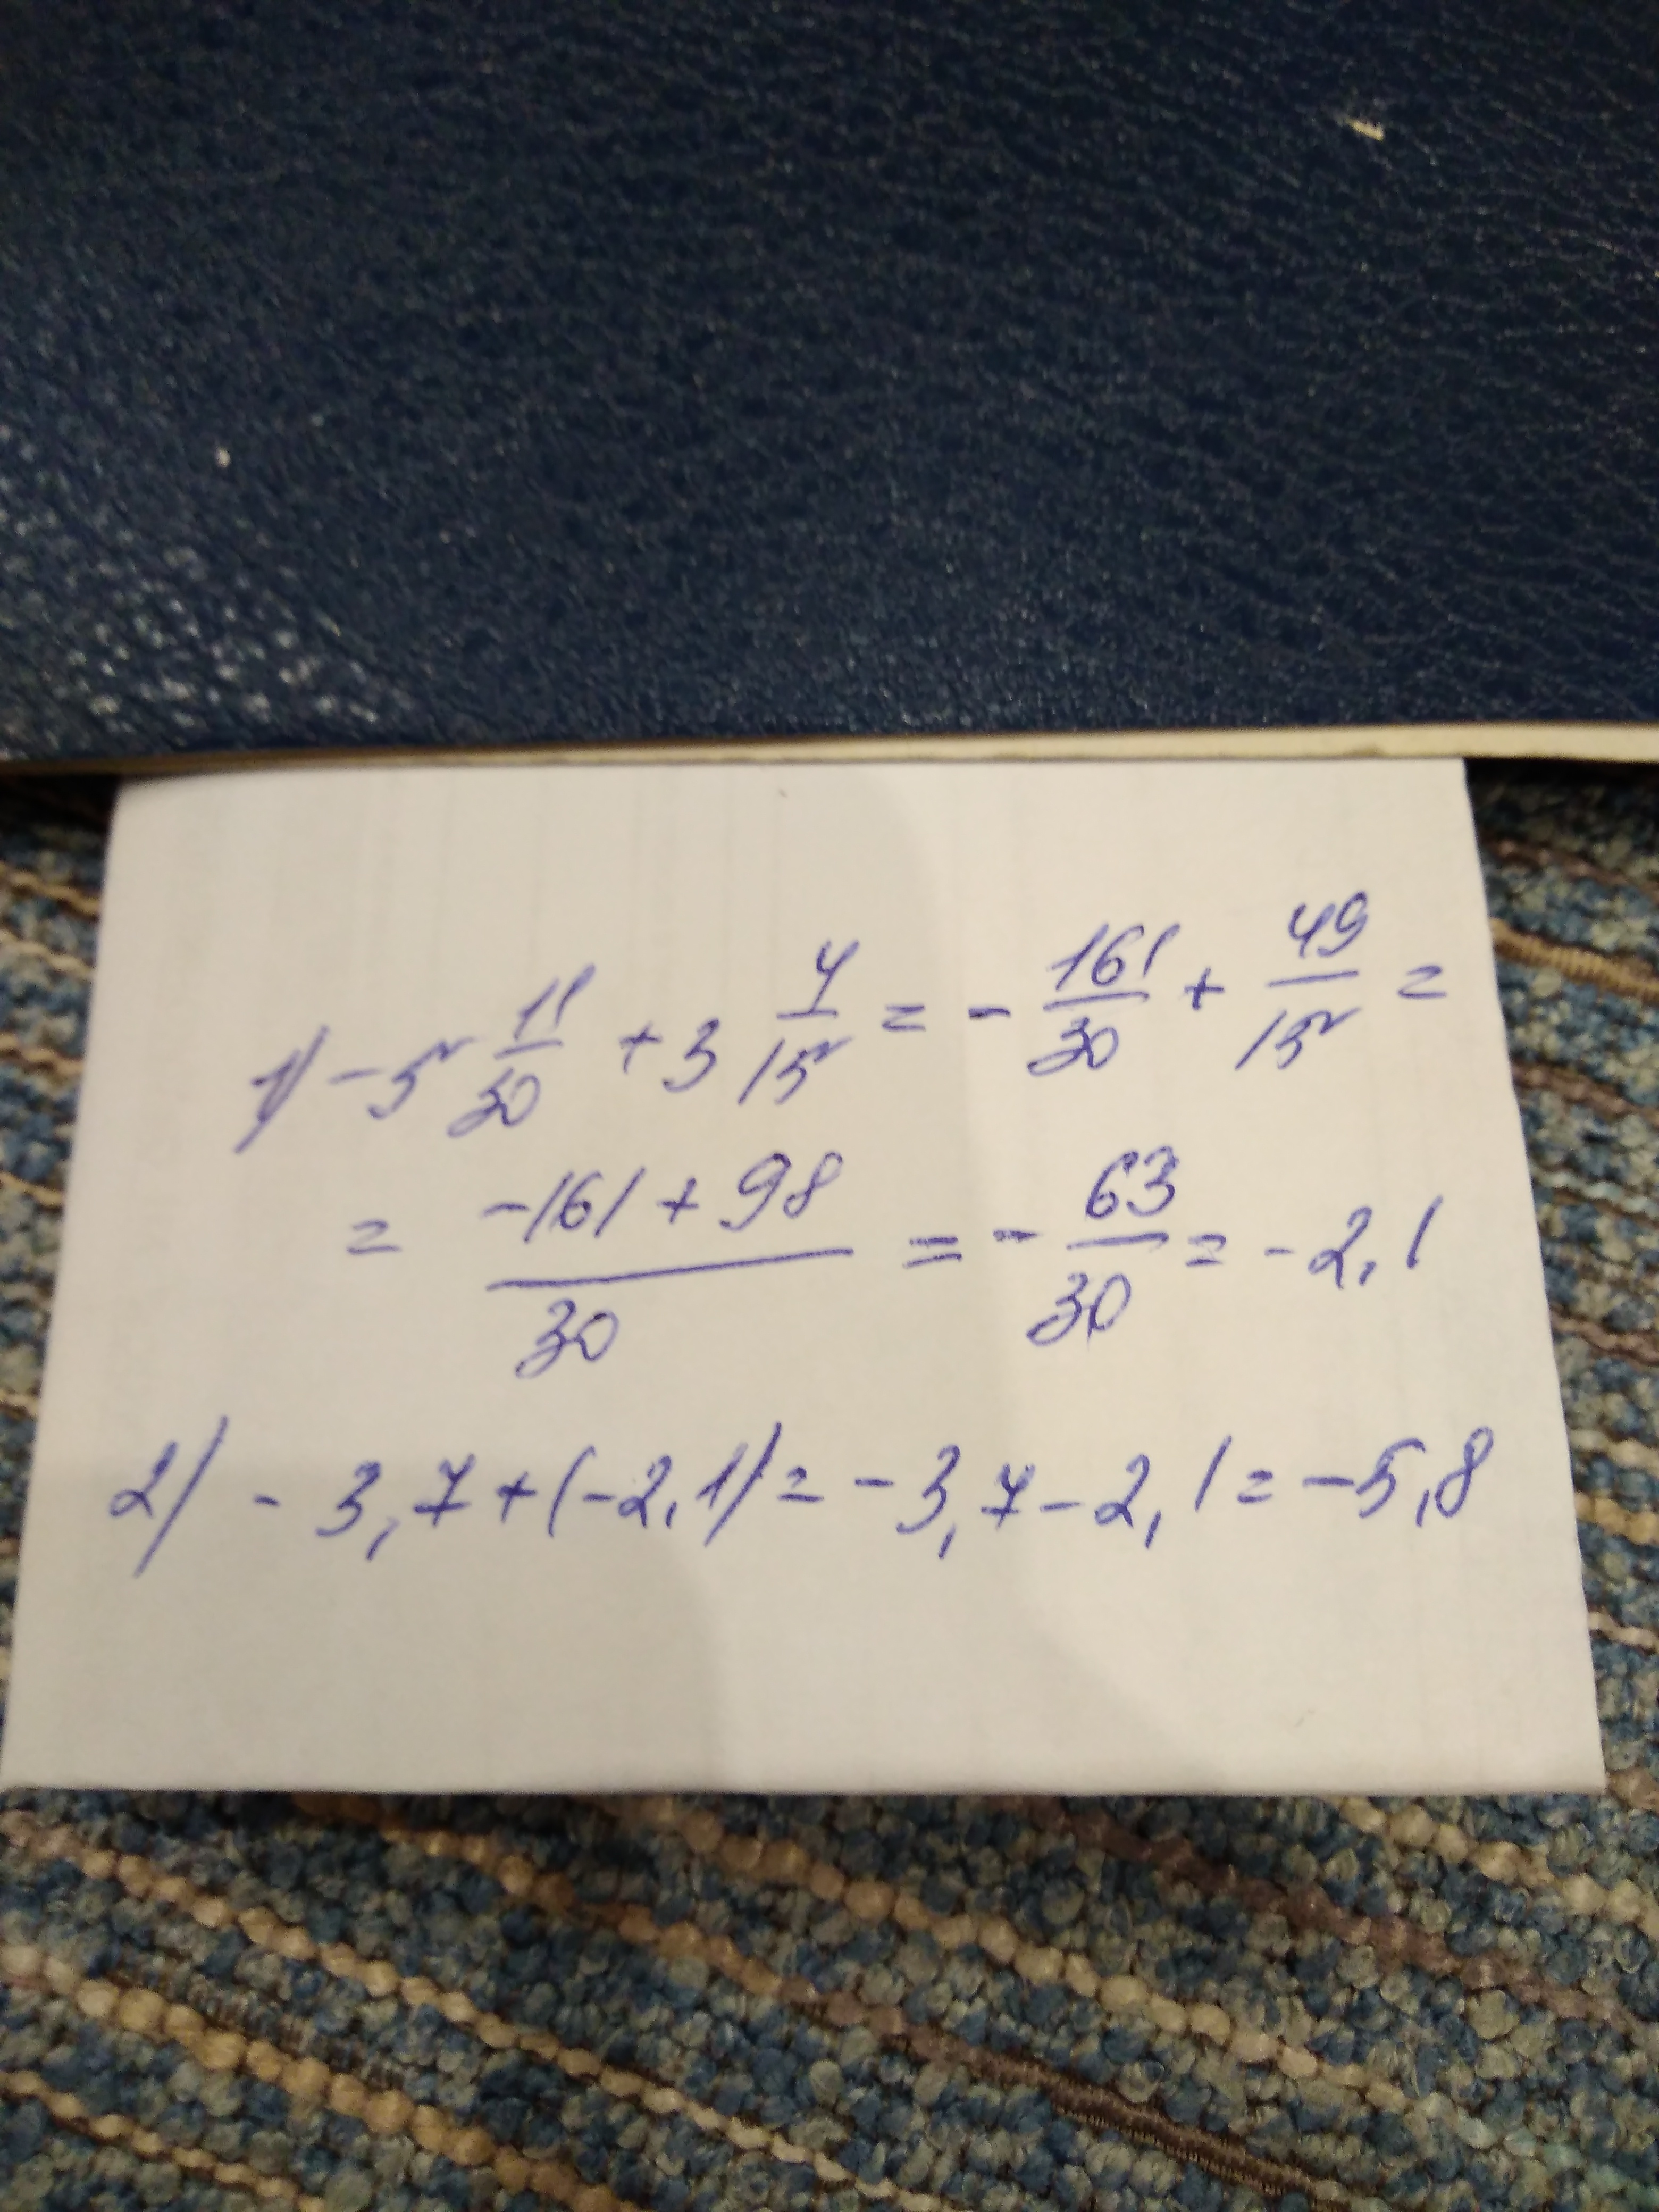 1) -5 11/30 + 3 4/15 = - 161/30 + 49/15 =
= (-161 + 98)/30 = - 63/30 = -2,1
2) - 3,7 + (-2,1) = -3,7 - 2,1 = -5,8